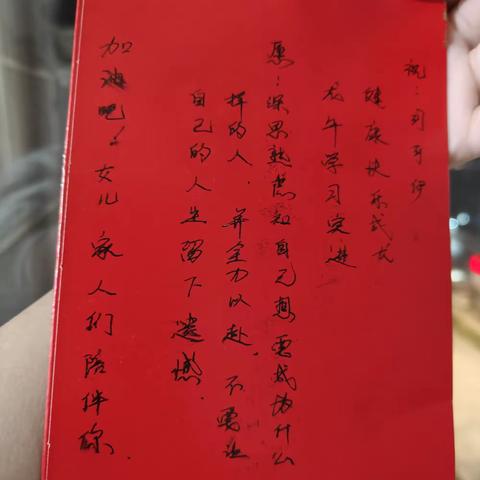 祝：
健康快乐
龙年学习突进
愿：深思熟虑知自己想要成为什么
样的人，并全力以赴，不要让
自己的人生留下遗憾.
加油吧！女儿家人们陪伴你.